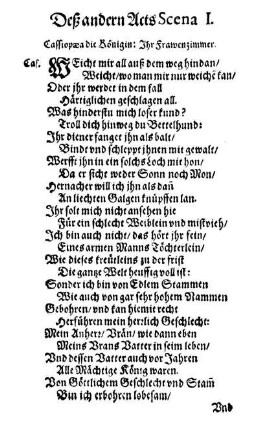 Deß andern Acts Scena I.
Cassiopæa die Königin: Ihr Frawenzimmer.
Cas. WEicht mir all auß dem weg hindan/
Weicht/ wo man mir nur weichē kan/
Oder ihr werdet in dem fall
Härtiglichen geschlagen all.
Was hinderstu mich loser hund?
Troll dich hinweg du Bettelhund:
Ihr diener fanget jhn als balt/
Bindt vnd schleppt jhnen mit gewalt/
Werfft jhn in ein solchs Loch mit hon/
Da er sicht weder Sonn noch Mon/
Hernacher will ich jhn als dañ
An liechten Galgen knüpffen lan.
Ihr solt mich nicht ansehen hie
Für ein schlecht Weiblein vnd mistvieh/
Ich bin auch nicht/ das hört jhr fein/
Eines armen Manns Töchterlein/
Wie dieses kreütleins zu der frist
Die gantze Welt heuffig voll ist:
Sonder ich bin von Edlem Stammen
Wie auch von gar sehr hohem Nammen
Gebohren/ vnd kan hiemit recht
Herführen mein herrlich Geschlecht:
Mein Anherr/ Vrän/ wie dann eben
Meins Vrans Vatter in seim leben/
Vnd dessen Vatter auch vor Jahren
Alle Mächtige König waren.
Von Göttlichem Geschlecht vnd Stam̃
Bin ich erbohren lobesam/
Vnd